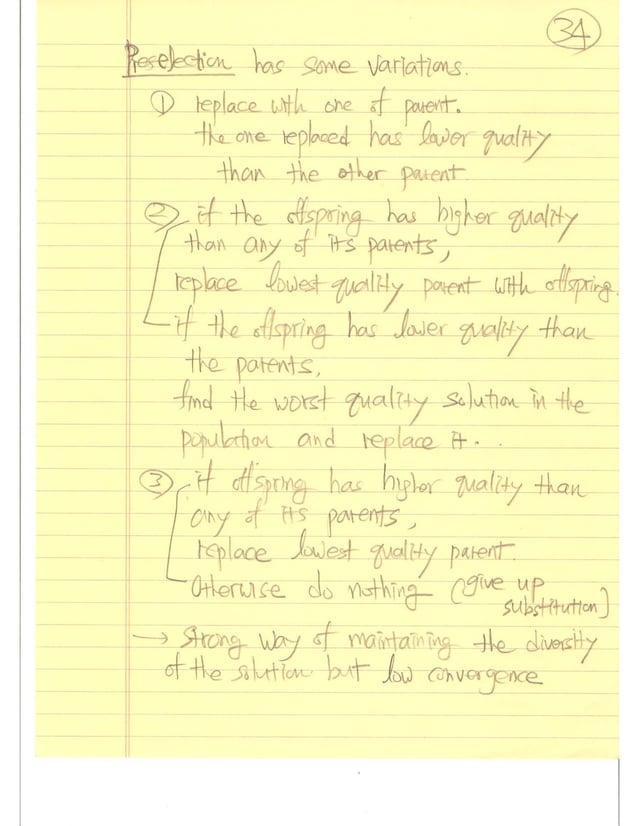 34
Preselection has some variations.
① replace with one of parent.
the one replaced has lower quality
than the other parent
② if the offspring has higher quality
than any of its parents,
replace lowest quality parent with offspring.
if the offspring has lower quality than
the parents,
find the worst quality solution in the
population and replace it..
③ if offspring has higher quality than
any of its parents,
replace lowest quality parent.
Otherwise do nothing (give up
substitution)
→ Strong way of maintaining the diversity
of the solution but low convergence